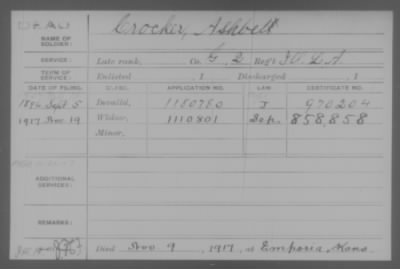 DEAD
Crocker, Ashbell
NAME OF SOLDIER:
SERVICE: Late rank, Co. G, 2 Reg't
TERM OF SERVICE: Enlisted , 1 Discharged , 1
DATE OF FILING. CLASS. APPLICATION NO. LAW CERTIFICATE NO.
1896 Sept 5 Invalid, 1180780 J 970204
1917 Nov. 19 Widow, 1110801 Sep. 858,858
Minor,
ADDITIONAL SERVICES:
REMARKS:
Died Nov 9, 1917, at Emporia Kans.